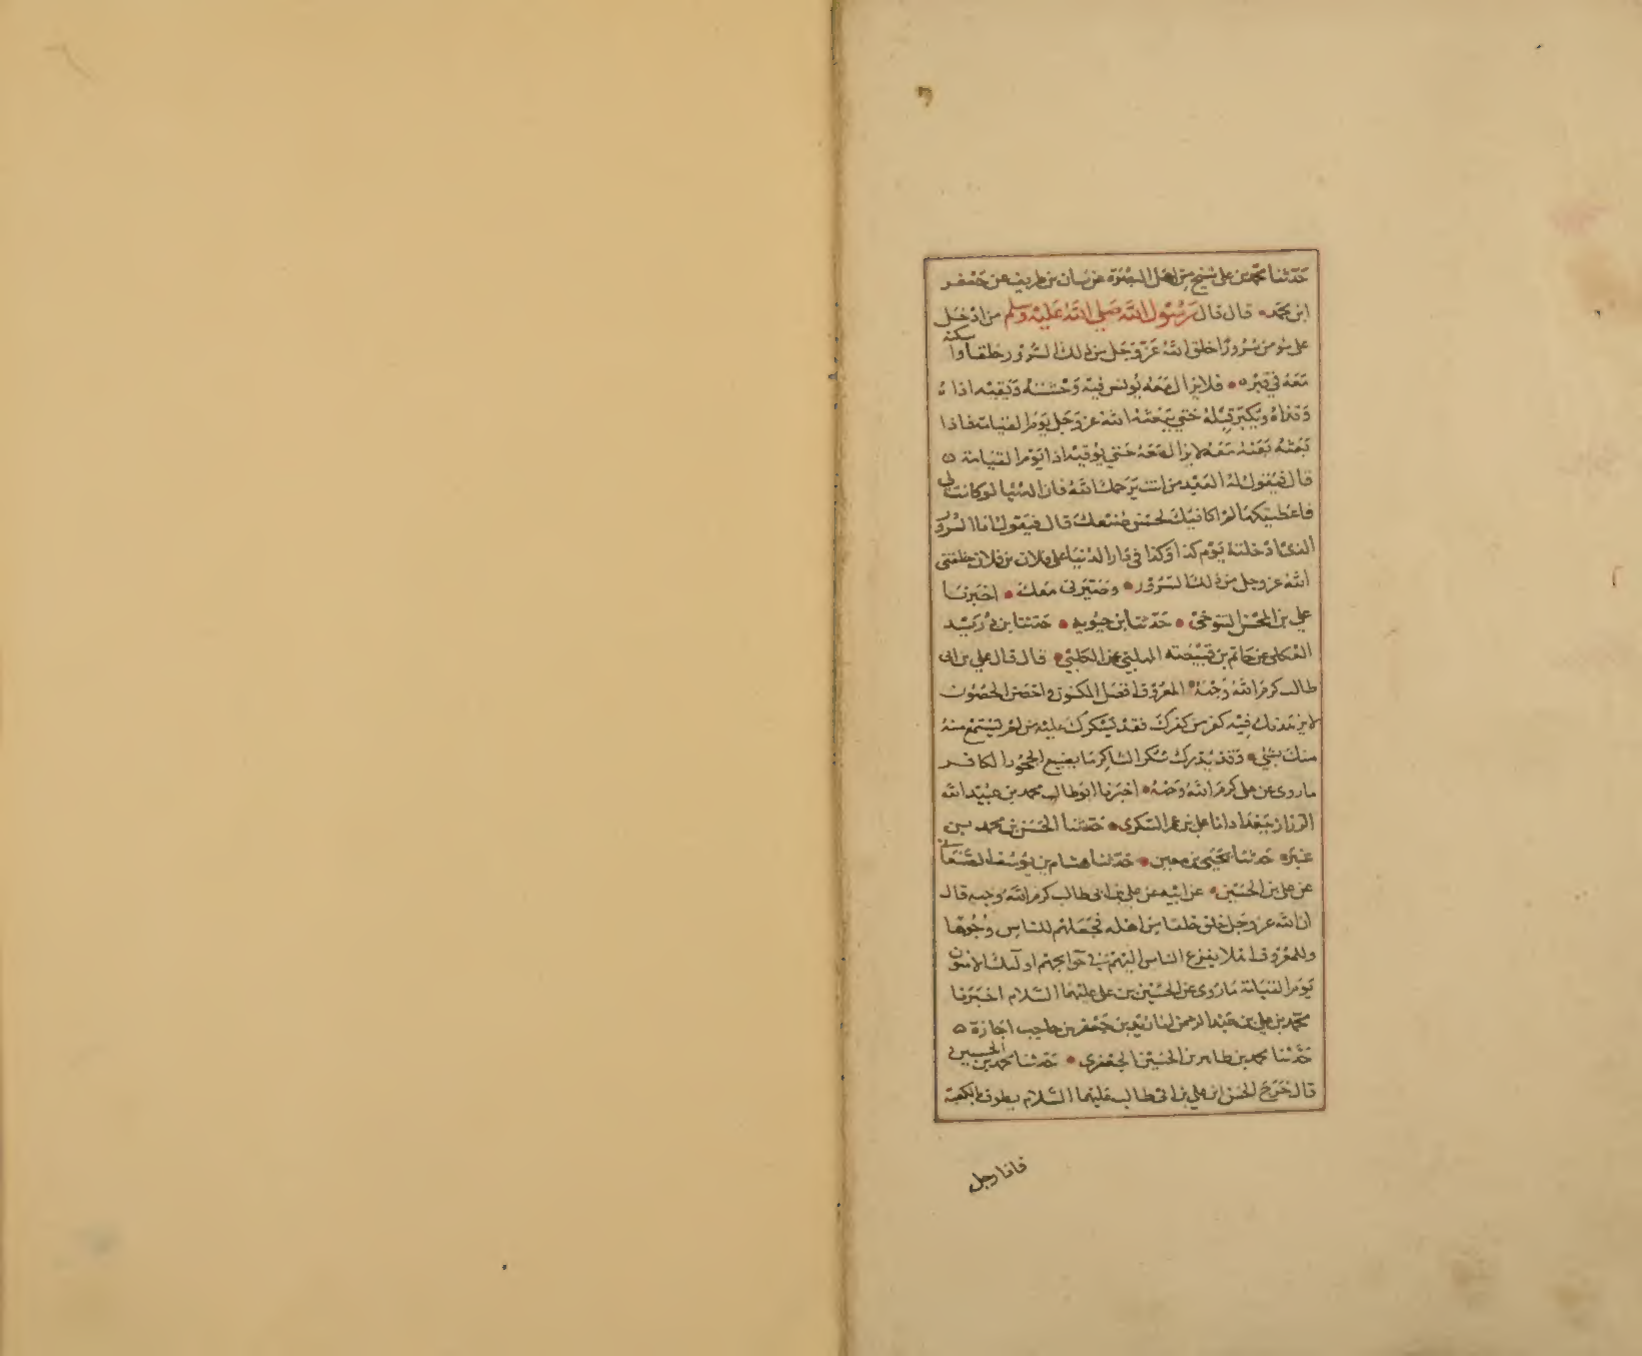 حَدّثنا محمّد بن علي شيخ من اهل البصرة عن سان بن طريف عن جَعْفر
ابن محمّد قال قال رَسُول الله صَلي الله عَليْه وَسلم من ادْخل
على مؤمن سُرورًا خلق الله عَزّ وَجَل من ذلك السّرور خلقا واسكنه
مَعَهُ في قبره فلا يزال مَعَه يُونس فيه وَحْشته وَيقيه اذا
وَيكبر قبله حَتي يَبْعَثهُ الله عز وَجَل يَوم القيامَة فاذا
بَعَثه بَعَثهُ مَعَهُ لا يزال مَعَهُ حَتى يوقيه اذا يَوم القيَامَة
قال فيَقول له العَبْد من انت يَرحمك الله فان الدنيا لو كانت لي
فاعطيتكها لم اكافيك لحسن صنعك قال فيَقول انا السّرور
الذي ادخلته يَوم كذا وَكذا في دَار الدنيا على فلان بن فلان خلقني
الله عز وجل من ذلك السّرور وصَيّرني مَعك اخبَرنا
علي بن المحسّن التنوخي حَدّثنا ابن حيويه حَدثنا ابن دُريد
العكلي عن حاتم بن قبيصة المهلبي عن الكلبي قال قال علي بن ابى
طالب كرم الله وَجْهَهُ المعرُوف افضل الكنوز واحْصَن الحصُون
لا يزهدنك فيه كفر من كفرك فقد يَشكرك عليه من لم يَسْتمتع منهُ
منك بشئ وَقد يُدرك شكر الشاكر مَا يضيع الجحُود الكافر
ما روى عن علي كرم الله وَجْهَهُ اخبَرنا ابو طالب محمد بن عُبيد الله
الرزاز ببَغداد انا علي بن عمر السكرى حَدثنا الحَسَن بن محمد بن
عنبَر حَدثنا يَحيَى بن معين حَدّثنا هشام بن يُوسُف الصّنعَاني
عن علي بن الحسَين عن ابيه عن علي بن ابى طالب كرم الله وجهه قال
ان الله عز وَجَل خلق خلقا من اهله فجَعَلهم للناس وجُوهًا
وللمعْرُوف اهلا يفزع الناس اليهم في حوائجهم اولئك الآمنون
يَوم القيَامَة مَا رَوى عن الحُسَين بن على عليهما السّلام اخبَرنا
محمّد بن علي بن عَبد الرحمن انا زيد بن جَعْفر بن حاجب اجازة
حَدّثنا محمد بن طاهر بن الحُسَين الجعفرى حَدثنا محمد بن الحسين
قال خرَج الحَسَن ابن علي بن ابى طالب عَليهما السّلام يطوف بالكعبَة
فاتا رجل